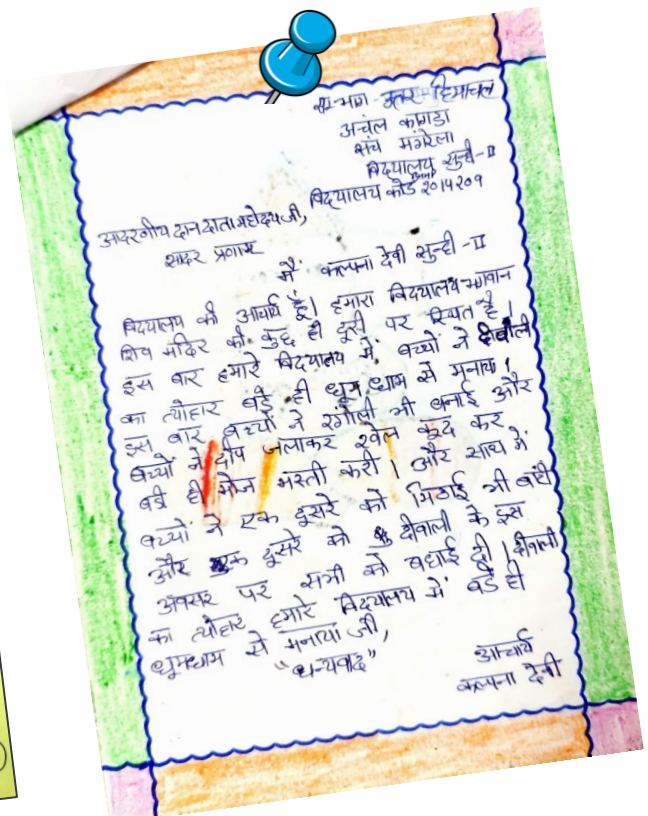 सम्भाग - उत्तर - हिमाचल
अचंल कांगडा
संच मंगरेला
विदयालय सुन्ही - II
विदयालय कोड २०१५२०९
आदरणीय दान दाता महोदय जी,
सादर प्रणाम
मैं कल्पना देवी सुन्ही - II
विदयालय की आचार्य हूँ। हमारा विदयालय भगवान
शिव मंदिर की कुछ ही दूरी पर स्थित है।
इस बार हमारे विदयालय में बच्चों ने दीवाली
का त्योहार बड़े ही धूम धाम से मनाया।
इस बार बच्चों ने रंगोली भी बनाई और
बच्चों ने दीप जलाकर खेल कूद कर
बडी ही मोज मस्ती करी। और साथ में
बच्चों ने एक दूसरे को मिठाई भी बांटी
और एक दूसरे को दीवाली के इस
अवसर पर सभी को बधाई दी। दीवाली
का त्योहार हमारे विदयालय में बडे ही
धूमधाम से मनाया जी,
"धन्यवाद"
आचार्य
कल्पना देवी